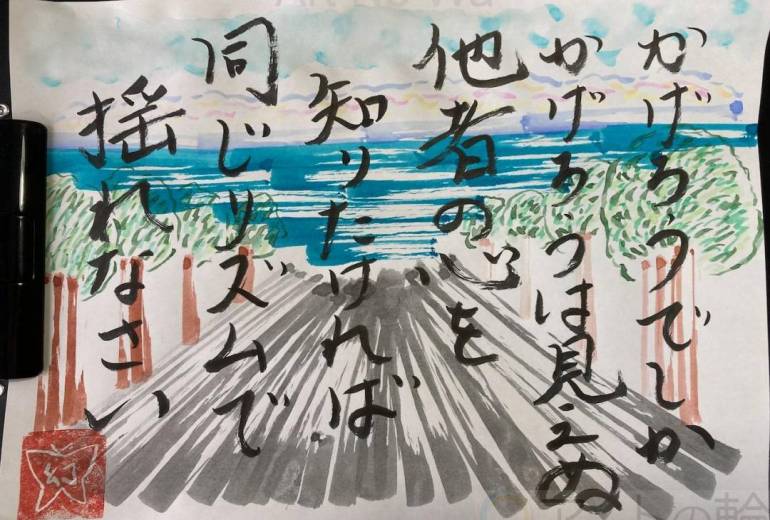 かげろうでしか
かげろうは見えぬ
他者の心を
知りたければ
同じリズムで
揺れなさい
幻